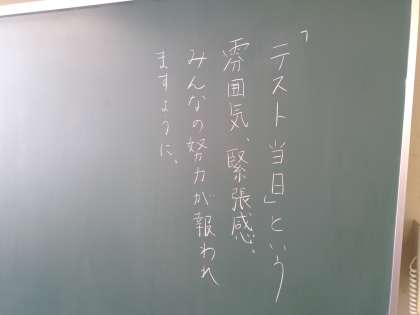 「テスト当日」という
雰囲気、緊張感、
みんなの努力が報われ
ますように、